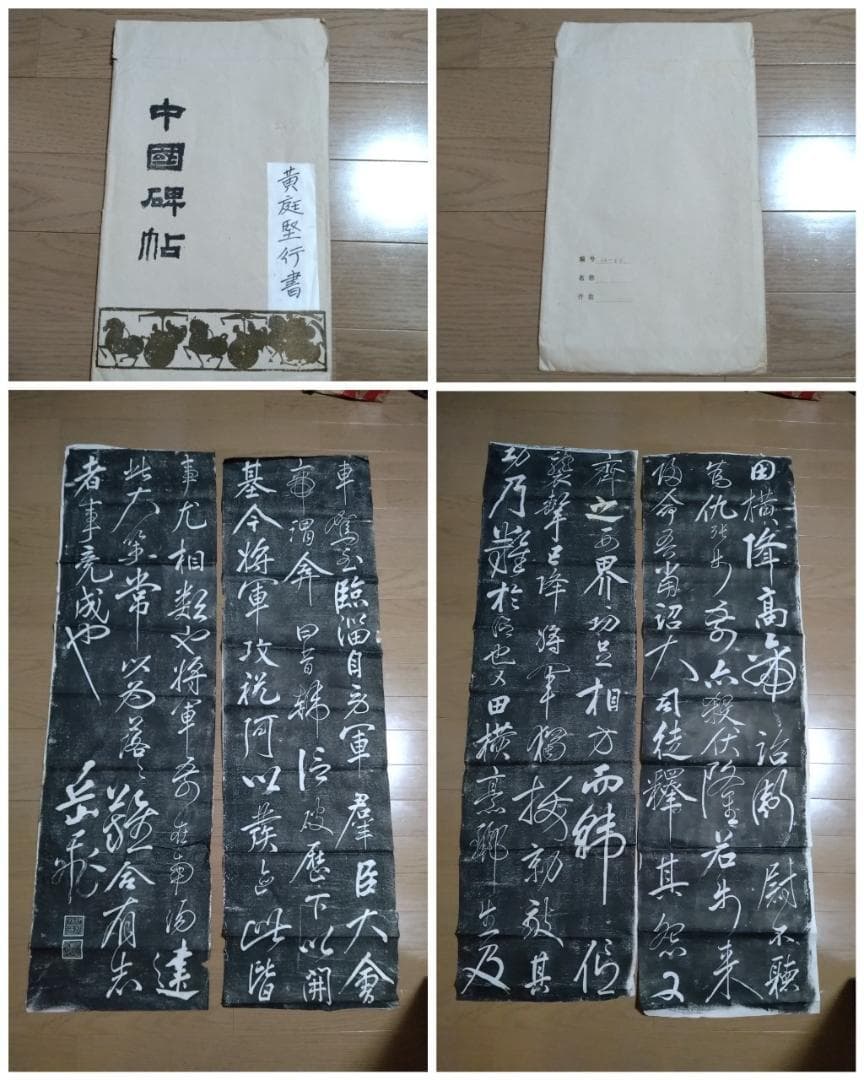 中國碑帖
黄庭堅行書
編号
名称
件数
車駕至臨淄自勞軍羣臣大會
帝謂弇曰昔韓信破歷下以開
基今將軍攻祝阿以發迹此皆
齊之西界功足相方而韓信
襲擊已降將軍獨拔勍敵其
功乃難於信也又田橫烹酈生及
田橫降高帝詔衛尉不聽
為仇張步前亦殺伏隆若步來
歸命吾當詔大司徒釋其怨又
事尤相類也將軍前在南陽建
此大策常以為落〻難合有志
者事竟成也
岳飛